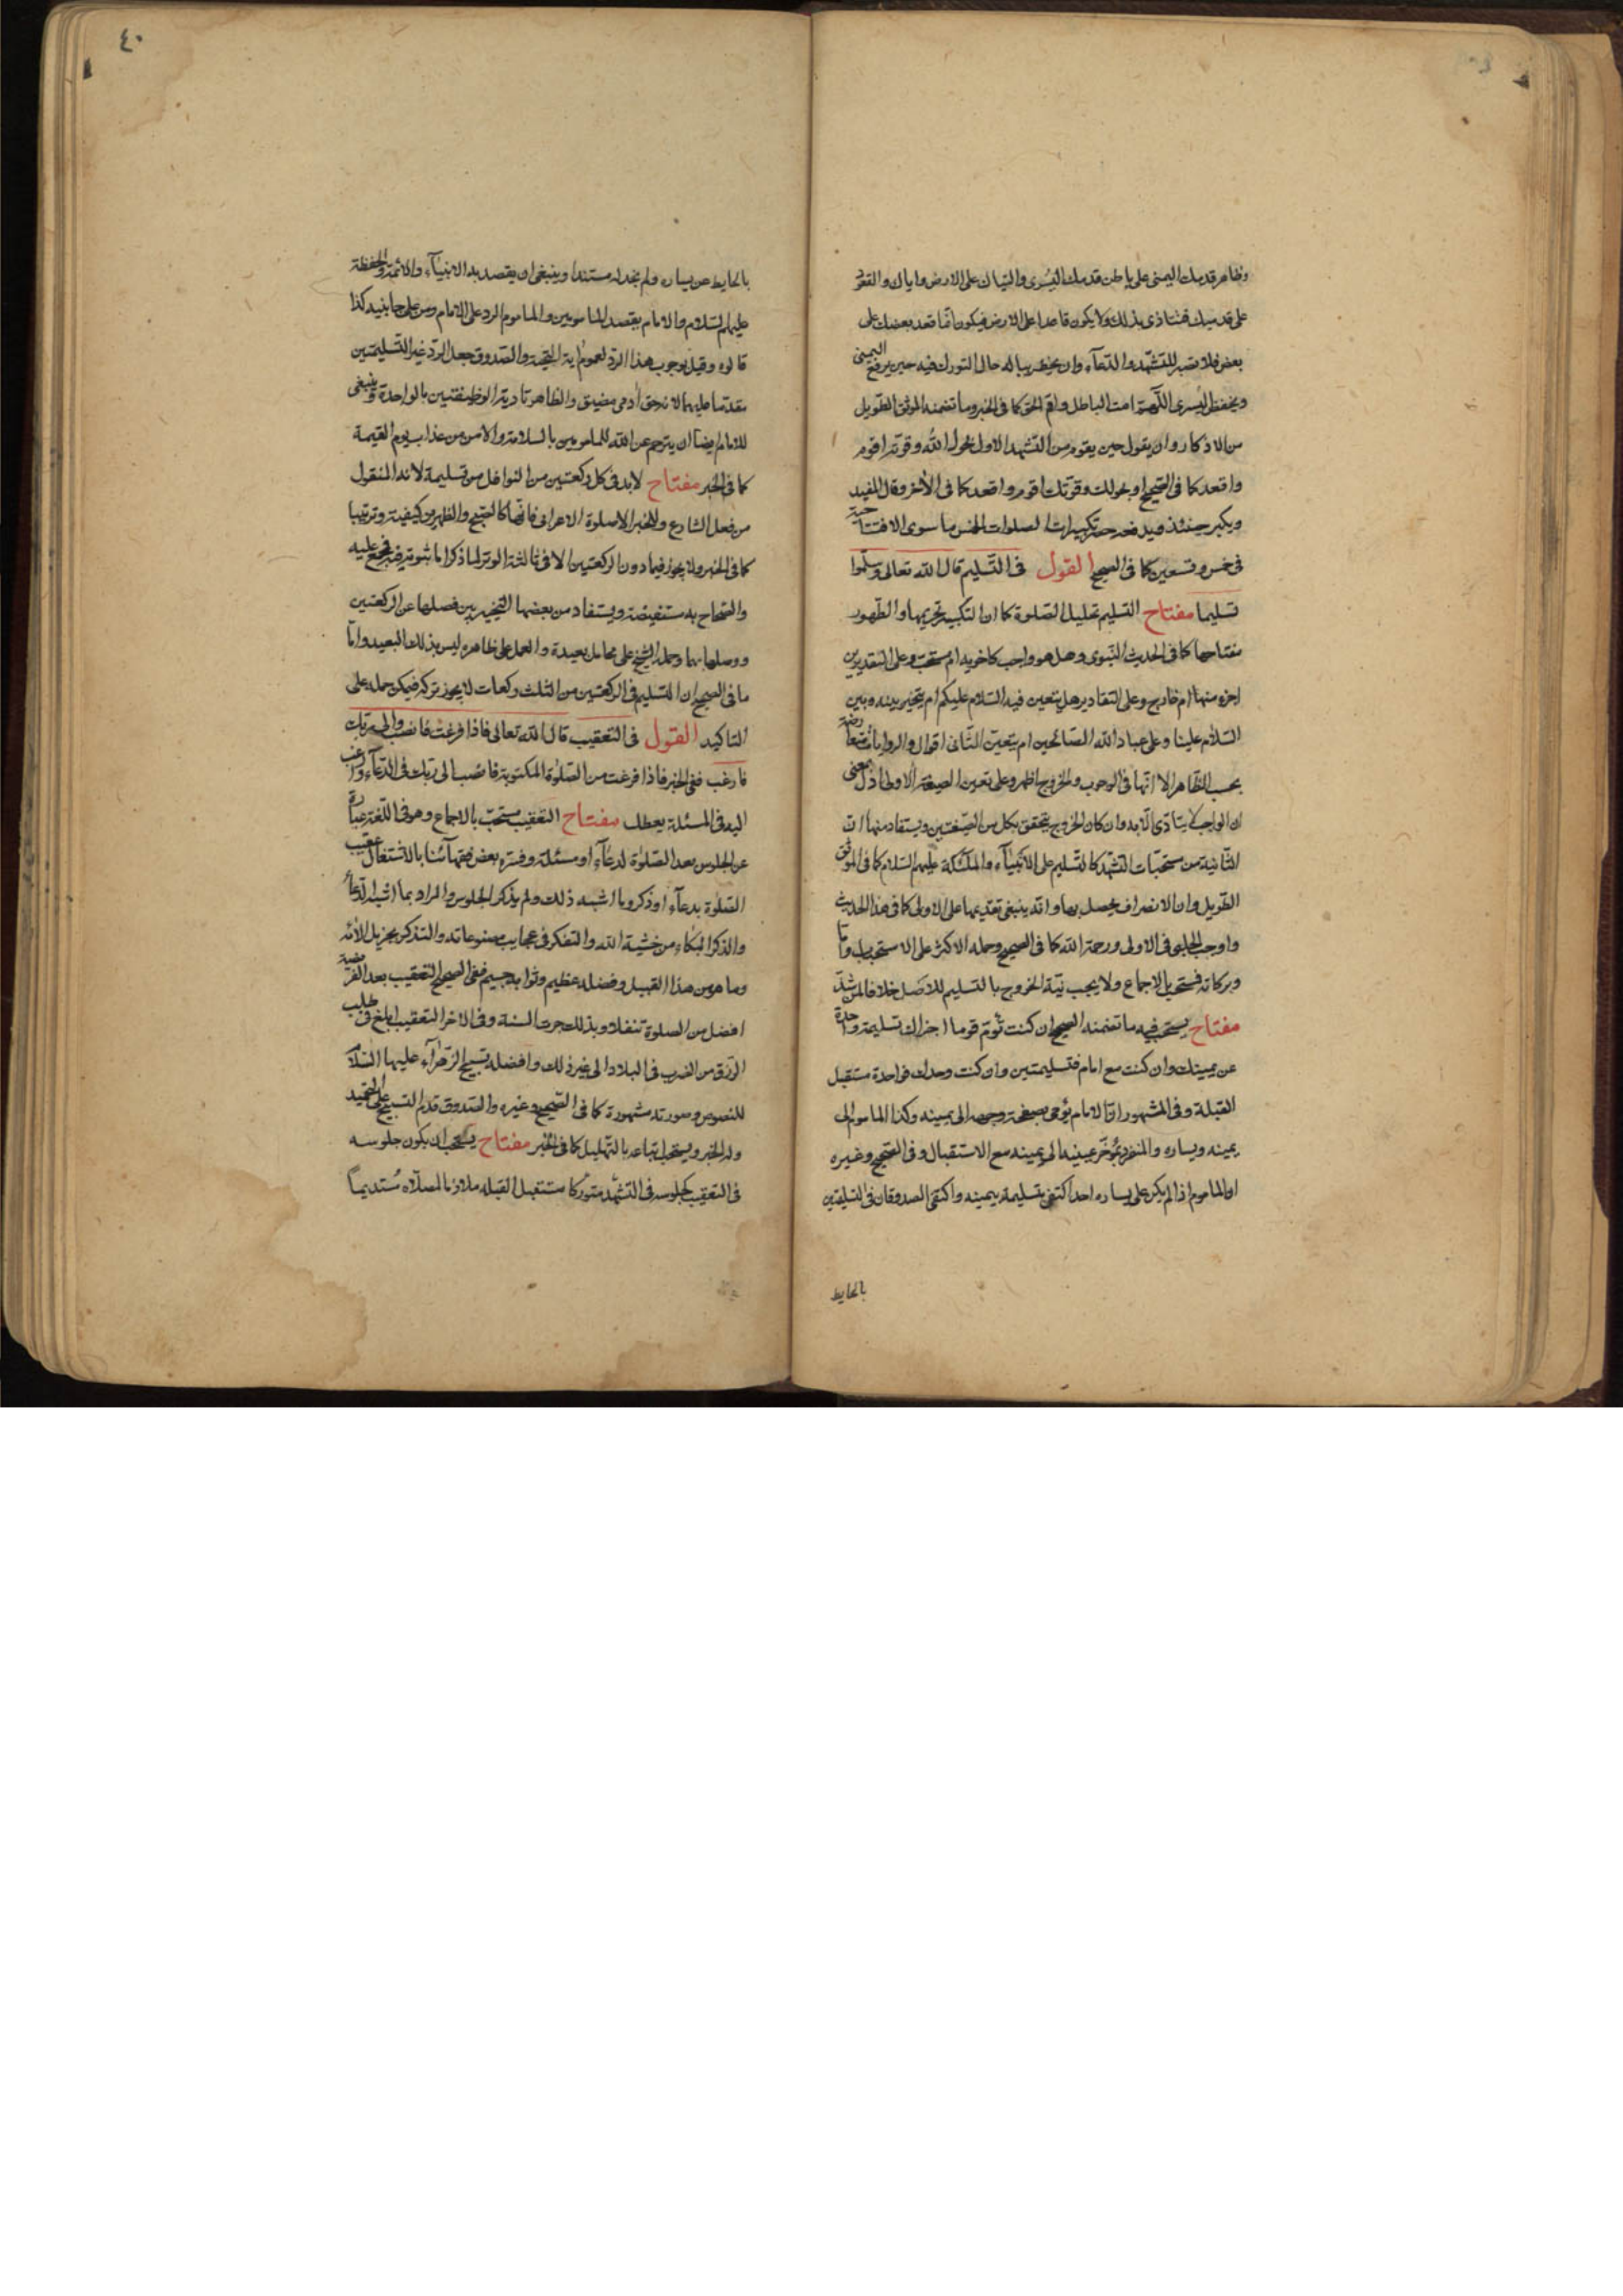 وظاهر قدمك اليمنى على باطن قدمك اليسرى واليتاك على الارض واياك والقعود
على قدميك فتتاذى بذلك ولا يكون قاعدا على الارض فيكون انما قعد بعضك على
بعض فلا تصبر للتشهد والدعاء وان يخطر بباله حال التورك فيه حين يرفع اليمنى
ويخفض اليسرى اللهم امت الباطل واقم الحق كما في الخبر وما تضمنه الموثق الطويل
من الاذكار وان يقول حين يقوم من التشهد الاول بحول الله وقوته اقوم
واقعد كما في الصحيح او بحولك وقوتك اقوم واقعد كما في الاخر وقال المفيد
ويكبر حينئذ تكبيرات الصلوات الخمس ما سوى الافتتاحية
في خمس وتسعين كما في الصحيح القول في التسليم قال الله تعالى وسلموا
تسليما مفتاح التسليم تحليل الصلوة كما ان التكبير تحريمها والطهور
مفتاحها كما في الحديث النبوي وهل هو واجب كاخويه ام مستحب وعلى التقديرين
اجزء منها ام خارج وعلى التقادير هل يتعين فيه السلام عليكم ام يتخير بينه وبين
السلام علينا وعلى عباد الله الصالحين ام يتعين الثاني اقوال والروايات متعارضة
بحسب الظاهر الا انها في الوجوب والخروج اظهر وعلى تعين الصيغة الاولى ادل بمعنى
ان الواجب لا يتادى الا به وان كان الخروج يتحقق بكل من الصيغتين ويستفاد منها ان
الثانية من مستحبات التشهد كالتسليم على الانبياء والملئكة عليهم السلام كما في الموثق
الطويل وان الانصراف يحصل بها وانه ينبغي تقديمها على الاولى كما في هذا الحديث
واوجب الحلبي في الاولى ورحمة الله كما في الصحيح وحمله الاكثر على الاستحباب واما
وبركاته فمستحب بالاجماع ولا يجب نية الخروج بالتسليم للاصل خلافا لمن شذ
مفتاح يستحب فيه ما تضمنه الصحيح ان كنت تؤم قوما اجزاك تسليمة واحدة
عن يمينك وان كنت مع امام فتسليمتين وان كنت وحدك فواحدة مستقبل
القبلة وفي المشهور ان الامام يؤمي بصفحة وجهه الى يمينه وكذا الماموم الى
يمينه ويساره والمنفرد بمؤخر عينيه الى يمينه مع الاستقبال وفي الصحيح وغيره
ان الماموم اذا لم يكن على يساره احد اكتفى بتسليمة يمينه واكتفى الصدوقان في التسليمتين
بالحايط
٤٠
بالحايط عن يساره ولم نجد له مستندا وينبغي ان يقصد به الانبياء والائمة والحفظة
عليهم السلام والامام يقصد المامومين والماموم الرد على الامام ومن على جانبيه كذا
قالوه وقيل بوجوب هذا الرد لعموم اية التحية والصدوق جعل الرد غير التسليمتين
مقدما عليهما لانه حق ادمي مضيق والظاهر تادية الوظيفتين بالواحدة وينبغي
للامام ايضا ان يترجم عن الله للمامومين بالسلامة والامن من عذاب يوم القيمة
كما في الخبر مفتاح لا بد في كل ركعتين من النوافل من تسليمة لانه المنقول
من فعل الشارع وللخبر الا صلوة الاعرابي فانها كالصبح والظهرين كيفية وترتيبا
كما في الخبر ولا يجوز فيما دون الركعتين الا في ثالثة الوتر لما ذكر اما ثبوته فيه فمجمع عليه
والصحاح به مستفيضة ويستفاد من بعضها التخيير بين فصلها عن الركعتين
ووصلها بهما وحمله الشيخ على محامل بعيدة والعمل على ظاهره ليس بذلك البعيد واما
ما في الصحيح ان التسليم في الركعتين من الثلث ركعات لا يجوز تركه فيمكن حمله على
التاكيد القول في التعقيب قال الله تعالى فاذا فرغت فانصب والى ربك
فارغب ففي الخبر فاذا فرغت من الصلوة المكتوبة فانصب الى ربك في الدعاء وارغب
اليه في المسئلة يعطك مفتاح التعقيب مستحب بالاجماع وهو في اللغة عبارة
عن الجلوس بعد الصلوة لدعاء او مسئلة وفسره بعض فقهائنا بالاشتغال عقيب
الصلوة بدعاء او ذكر وما اشبه ذلك ولم يذكر الجلوس والمراد بما اشبه الدعاء
والذكر البكاء من خشية الله والتفكر في عجايب مصنوعاته والتذكر بجزيل الائه
وما هو من هذا القبيل وفضله عظيم وثوابه جسيم ففي الصحيح التعقيب بعد الفريضة
افضل من الصلوة تنفلا وبذلك جرت السنة وفي الاخر التعقيب ابلغ في طلب
الرزق من الضرب في البلاد الى غير ذلك وافضله تسبيح الزهراء عليها السلام
للنصوص وصورته مشهورة كما في الصحيح وغيره والصدوق قدم التسبيح على التحميد
وله الخبر ويستحب اتباعه بالتهليل كما في الخبر مفتاح يستحب ان يكون جلوسه
في التعقيب كجلوسه في التشهد متوركا مستقبل القبله ملازما لمصلاه مستديما